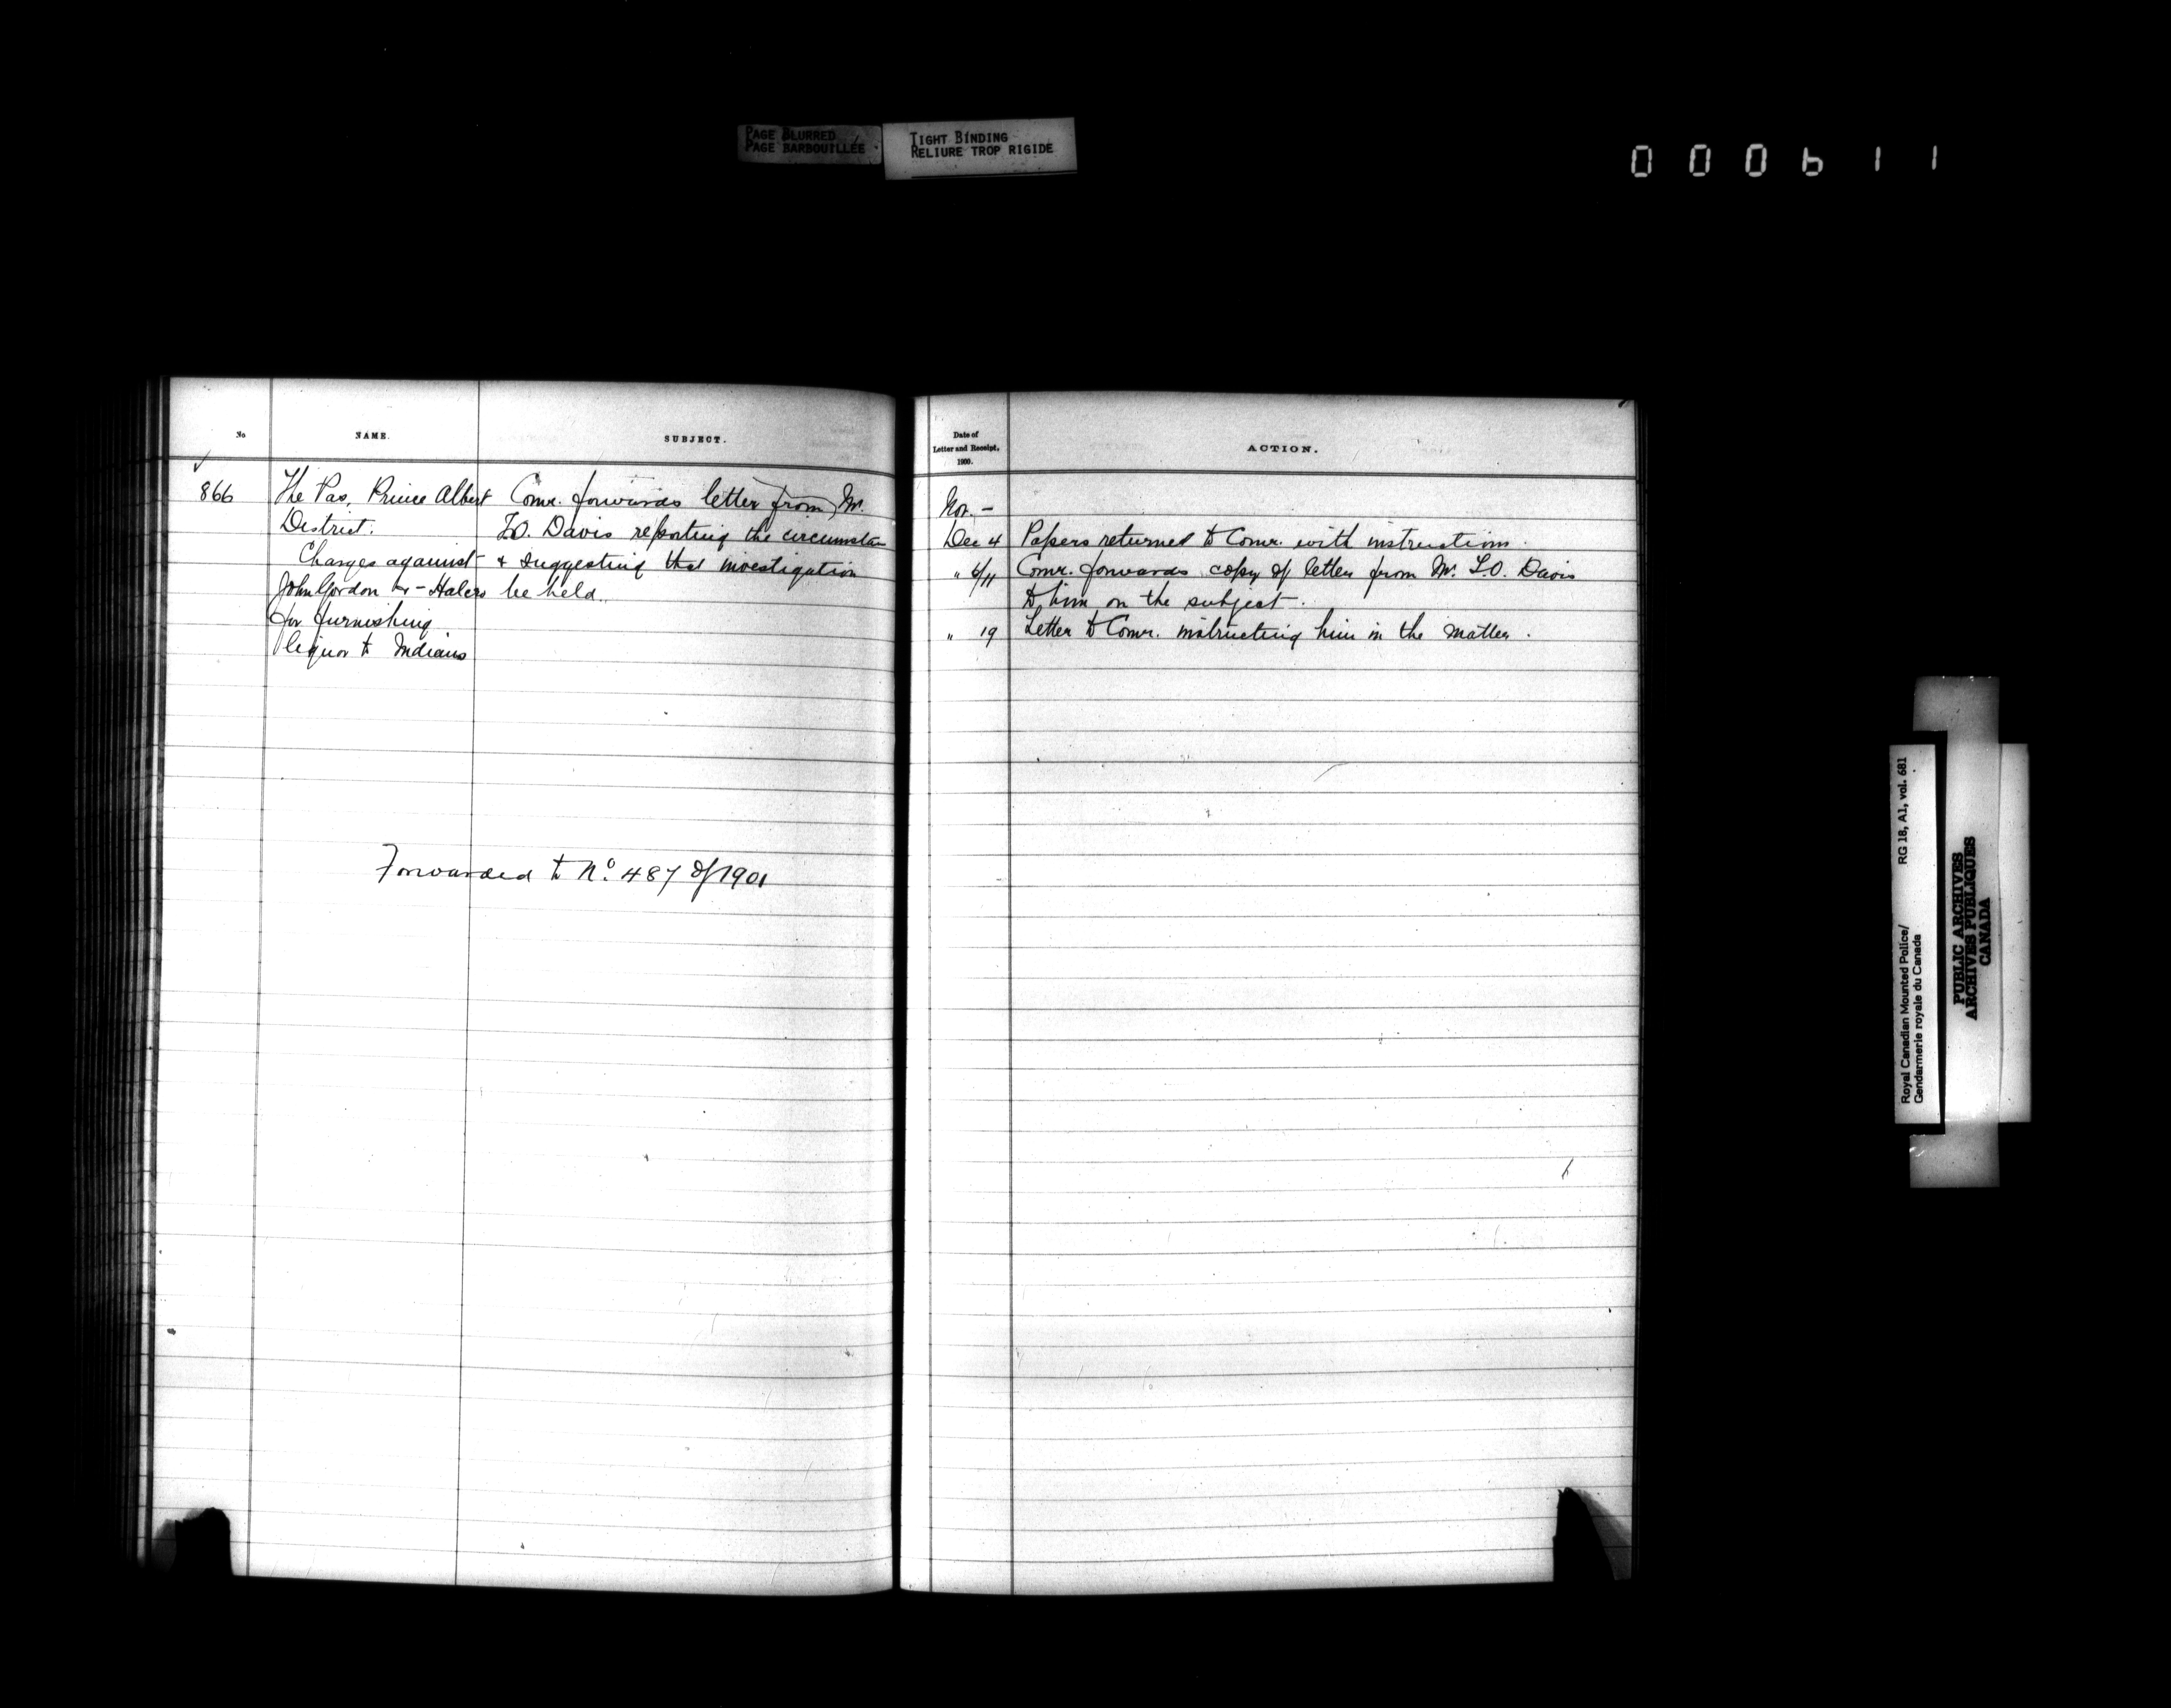 PAGE BLURRED
PAGE BARBOUILLÉE
TIGHT BINDING
RELIURE TROP RIGIDE
000611
No
NAME.
SUBJECT.
866
The Pas, Prince Albert
District.
Charges against
John Gordon &
for furnishing
liquor to Indians
Comr. forwards letter from Mr.
T.O. Davis reporting the circumstan
& suggesting that investigation
be held.
Forwarded to No. 487 of 1901
Date of
Letter and Receipt,
1900.
ACTION.
Nov. -
Dec 4 Papers returned to Comr. with instructions.
" 6/11 Comr. forwards copy of letter from Mr. T.O. Davis
to him on the subject.
" 19 Letter to Comr. instructing him in the matter.
Royal Canadian Mounted Police/ RG 18, A1, vol. 681
Gendarmerie royale du Canada
PUBLIC ARCHIVES
ARCHIVES PUBLIQUES
CANADA